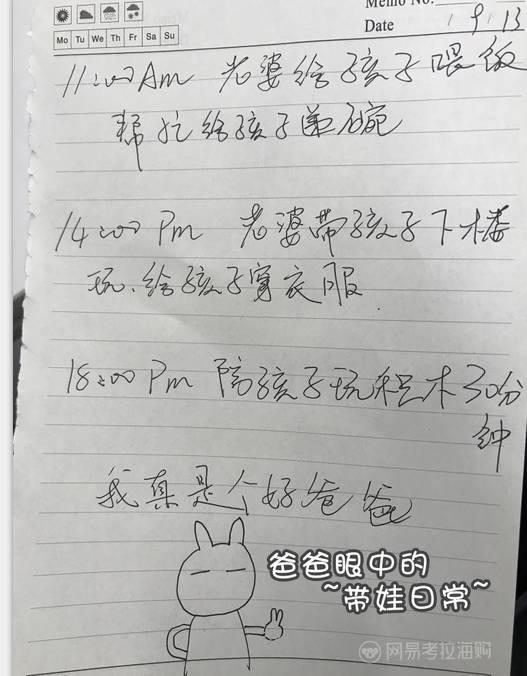 Memo No.
Mo Tu We Th Fr Sa Su
Date 1 9 / 13
11:00 Am 老婆给孩子喂饭
帮忙给孩子递碗
14:00 Pm 老婆带孩子下楼
玩、给孩子穿衣服
18:00 Pm 陪孩子玩积木30分
钟
我真是个好爸爸
爸爸眼中的
~带娃日常~
网易考拉海购